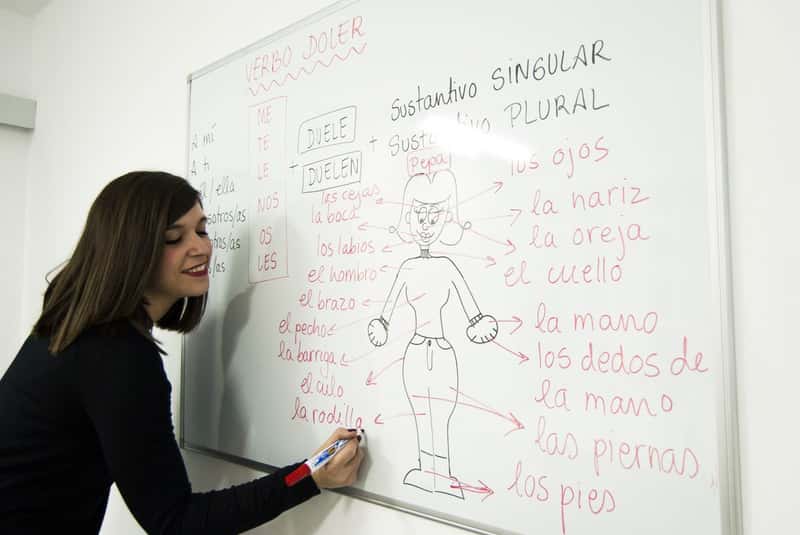 VERBO DOLER
A mí
A ti
/ella
/as
/as
/as
ME
TE
LE
NOS
OS
LES
+
DUELE
DUELEN
+
Sustantivo SINGULAR
Sustantivo PLURAL
Pepa
las cejas
la boca
los labios
el hombro
el brazo
el pecho
la barriga
el culo
la rodilla
los ojos
la nariz
la oreja
el cuello
la mano
los dedos de
la mano
las piernas
los pies